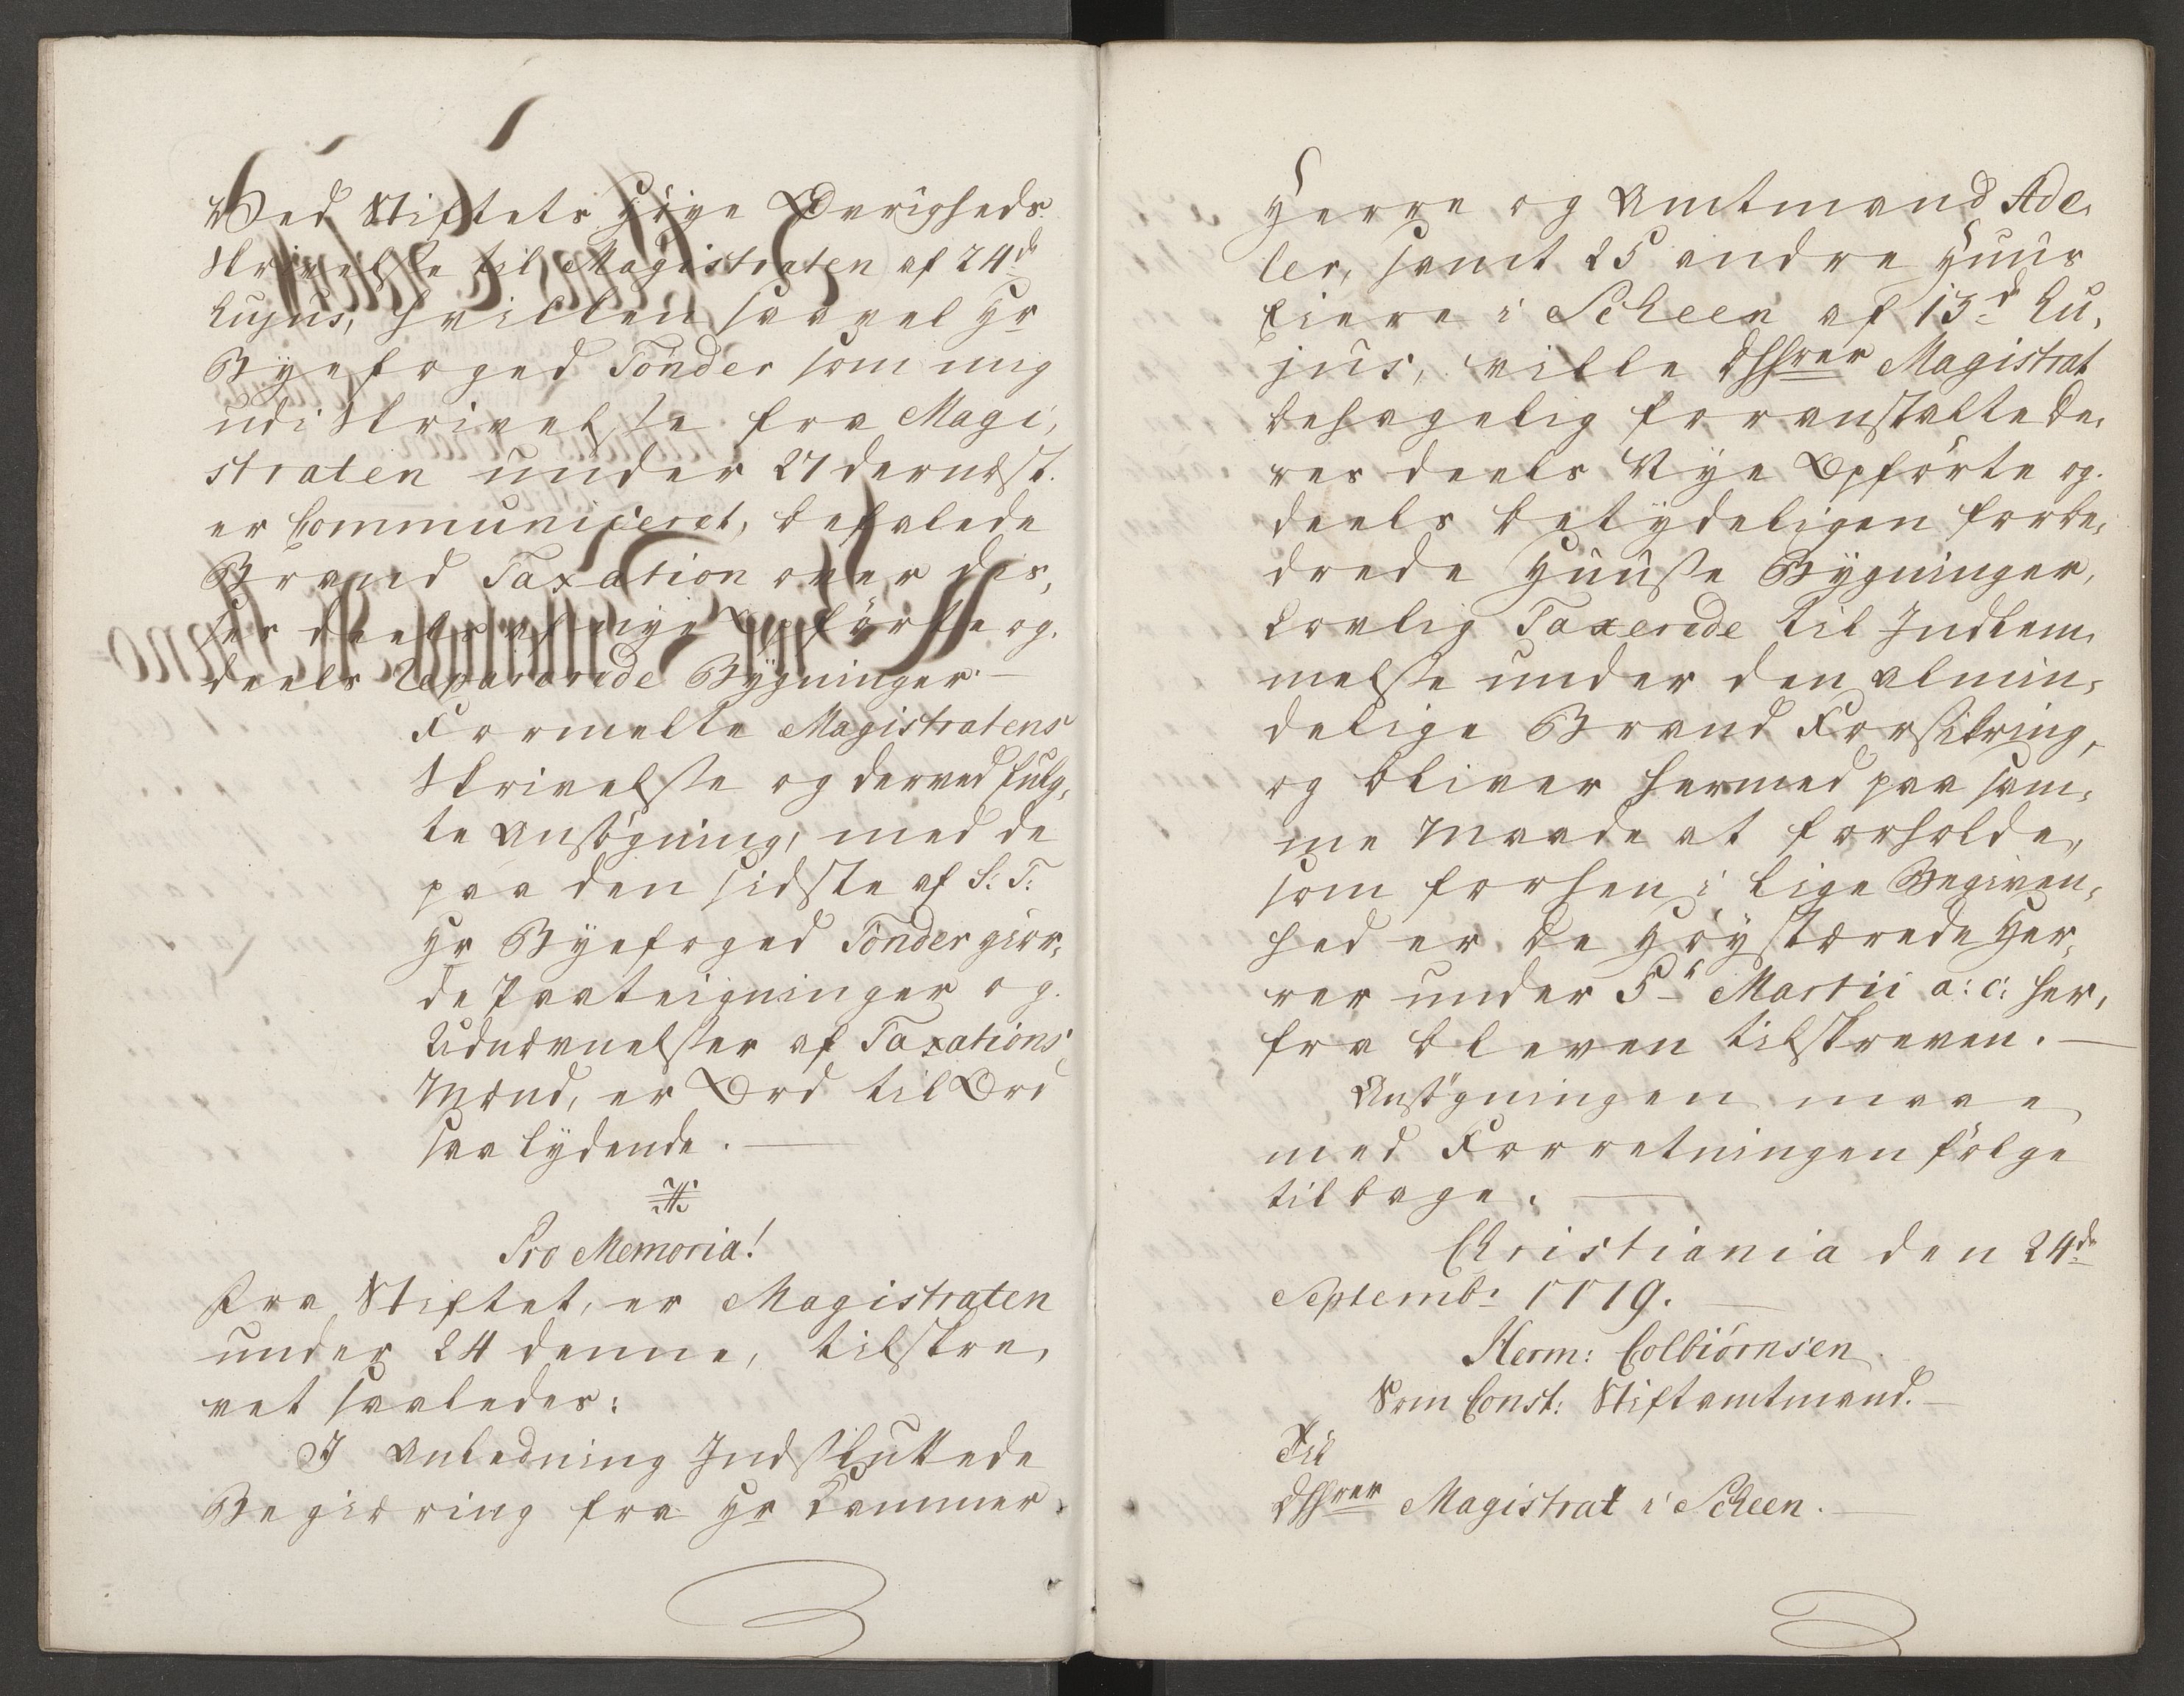 Ved Stiftets Høye Øvrigheds
Skrivelse til Magistraten af 24de
hujus, hvilken saavel Hr
Byefoged Tönder som mig
udi Skrivelse fra Magi,
straten under 27 dernæst.
er Communiceret, befalede
Brand Taxation over dis,
ser deels af nye Opförte og.
deels Reparerede Bÿgninger. —
Formelte Magistratens
Skrivelse og derved fulg,
te Ansögning, med de
paa den sidste af S: T:
Hr Byefoged Tönder giør,
de Paateigninger og.
Udnævnelser af Taxations
Mænd, er Ord til Ord
saa lÿdende. —
Pro Memoria!
Fra Stiftet, er Magistraten
under 24 denne, tilskre,
vet saaledes:
I Anledning Indsluttede
Begiæring fra Hr Kammer,
Herre og Amtmand Ade,
ler, samt 25 andre Huus
Eiere i Scheen af 13de hu,
jus, ville Magistrat
behagelig foranstalte de,
res deels Nÿe Opförte og.
deels betÿdeligen forbe,
drede Huuse Bÿgninger,
Lovlig Taxerede til Indlem,
melse under den almin,
delige Brand Forsikring,
og bliver hermed paa sam,
me Maade at forholde,
som forhen i lige Begiven,
hed er de Høystærede Her,
rer under 5te Martii a: c: her,
fra bleven tilskreven. —
Ansögningen maae
med Forretningen fölge
tilbage. —
Christiania den 24de
Septembr 1779. —
Herm: Colbiörnsen.
Som Const: Stiftamtmand. —
Til
Magistrat i Scheen. —